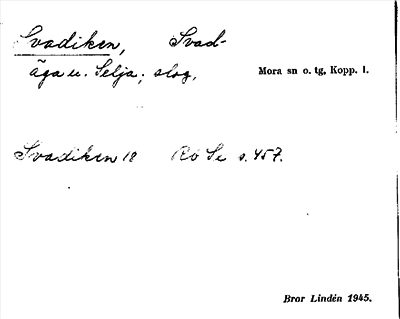 Svadiken, Svad-
äga u. Selja; slog.
Mora sn o. tg, Kopp. l.
Svadiken 18 Rö Se s. 457.
Bror Lindén 1945.